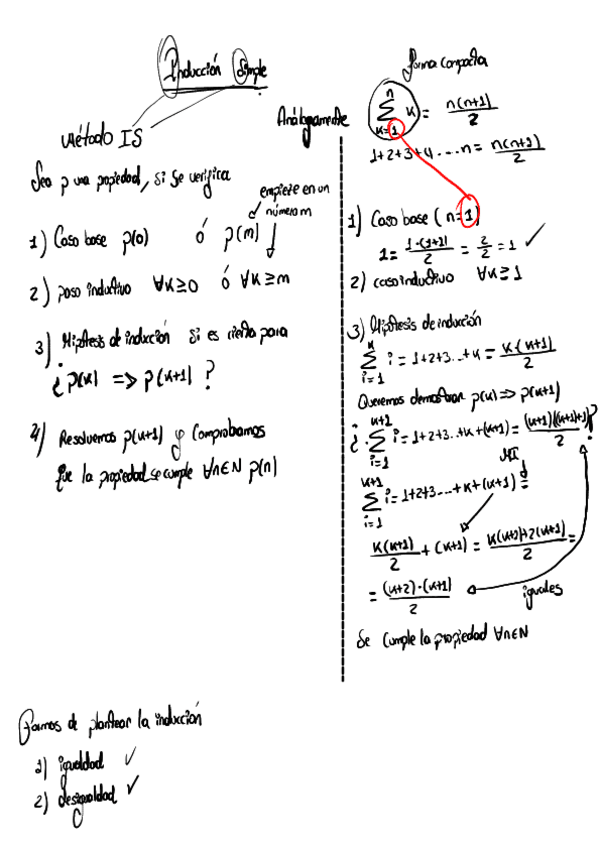 Inducción Simple
Método IS
Sea p una propiedad, si se verifica
empieze en un
número m
1) Caso base p(0) ó p(m)
2) paso inductivo ∀k≥0 ó ∀k≥m
3) Hipótesis de inducción si es cierto para
¿ p(k) => p(k+1) ?
4) Resolvemos p(k+1) y comprobamos
que la propiedad se cumple ∀n∈N p(n)
Análogamente
forma compacta
n
∑ k = n(n+1)/2
k=1
1+2+3+4....n = n(n+1)/2
1) Caso base (n=1)
1 = 1·(1+1)/2 = 2/2 = 1 ✓
2) caso inductivo ∀k≥1
3) Hipótesis de inducción
k
∑ i = 1+2+3...+k = k·(k+1)/2
i=1
Queremos demostrar p(k) => p(k+1)
k+1
¿ ∑ i = 1+2+3...+k+(k+1) = (k+1)((k+1)+1)/2 ?
i=1
HI
k+1
∑ i = 1+2+3...+k+(k+1) =
i=1
k(k+1)/2 + (k+1) = k(k+1)+2(k+1)/2 =
= (k+2)·(k+1)/2
iguales
Se cumple la propiedad ∀n∈N
Formas de plantear la inducción
1) igualdad ✓
2) desigualdad ✓